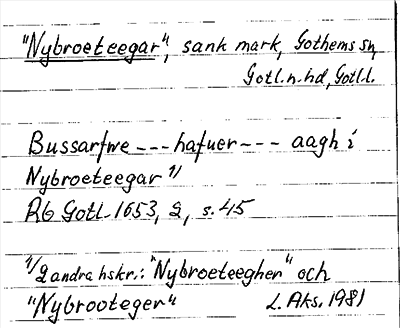 "Nybroeteegar", sank mark, Gothems sn,
Gotl. n. hd, Gotl. l.
Bussarfwe --- hafuer --- aagh i
Nybroeteegar 1/
Rb Gotl. 1653, 2, s. 45
1/ 2 andra hskr.: "Nybroeteegher" och
"Nybrooteger" L. Aks. 1981